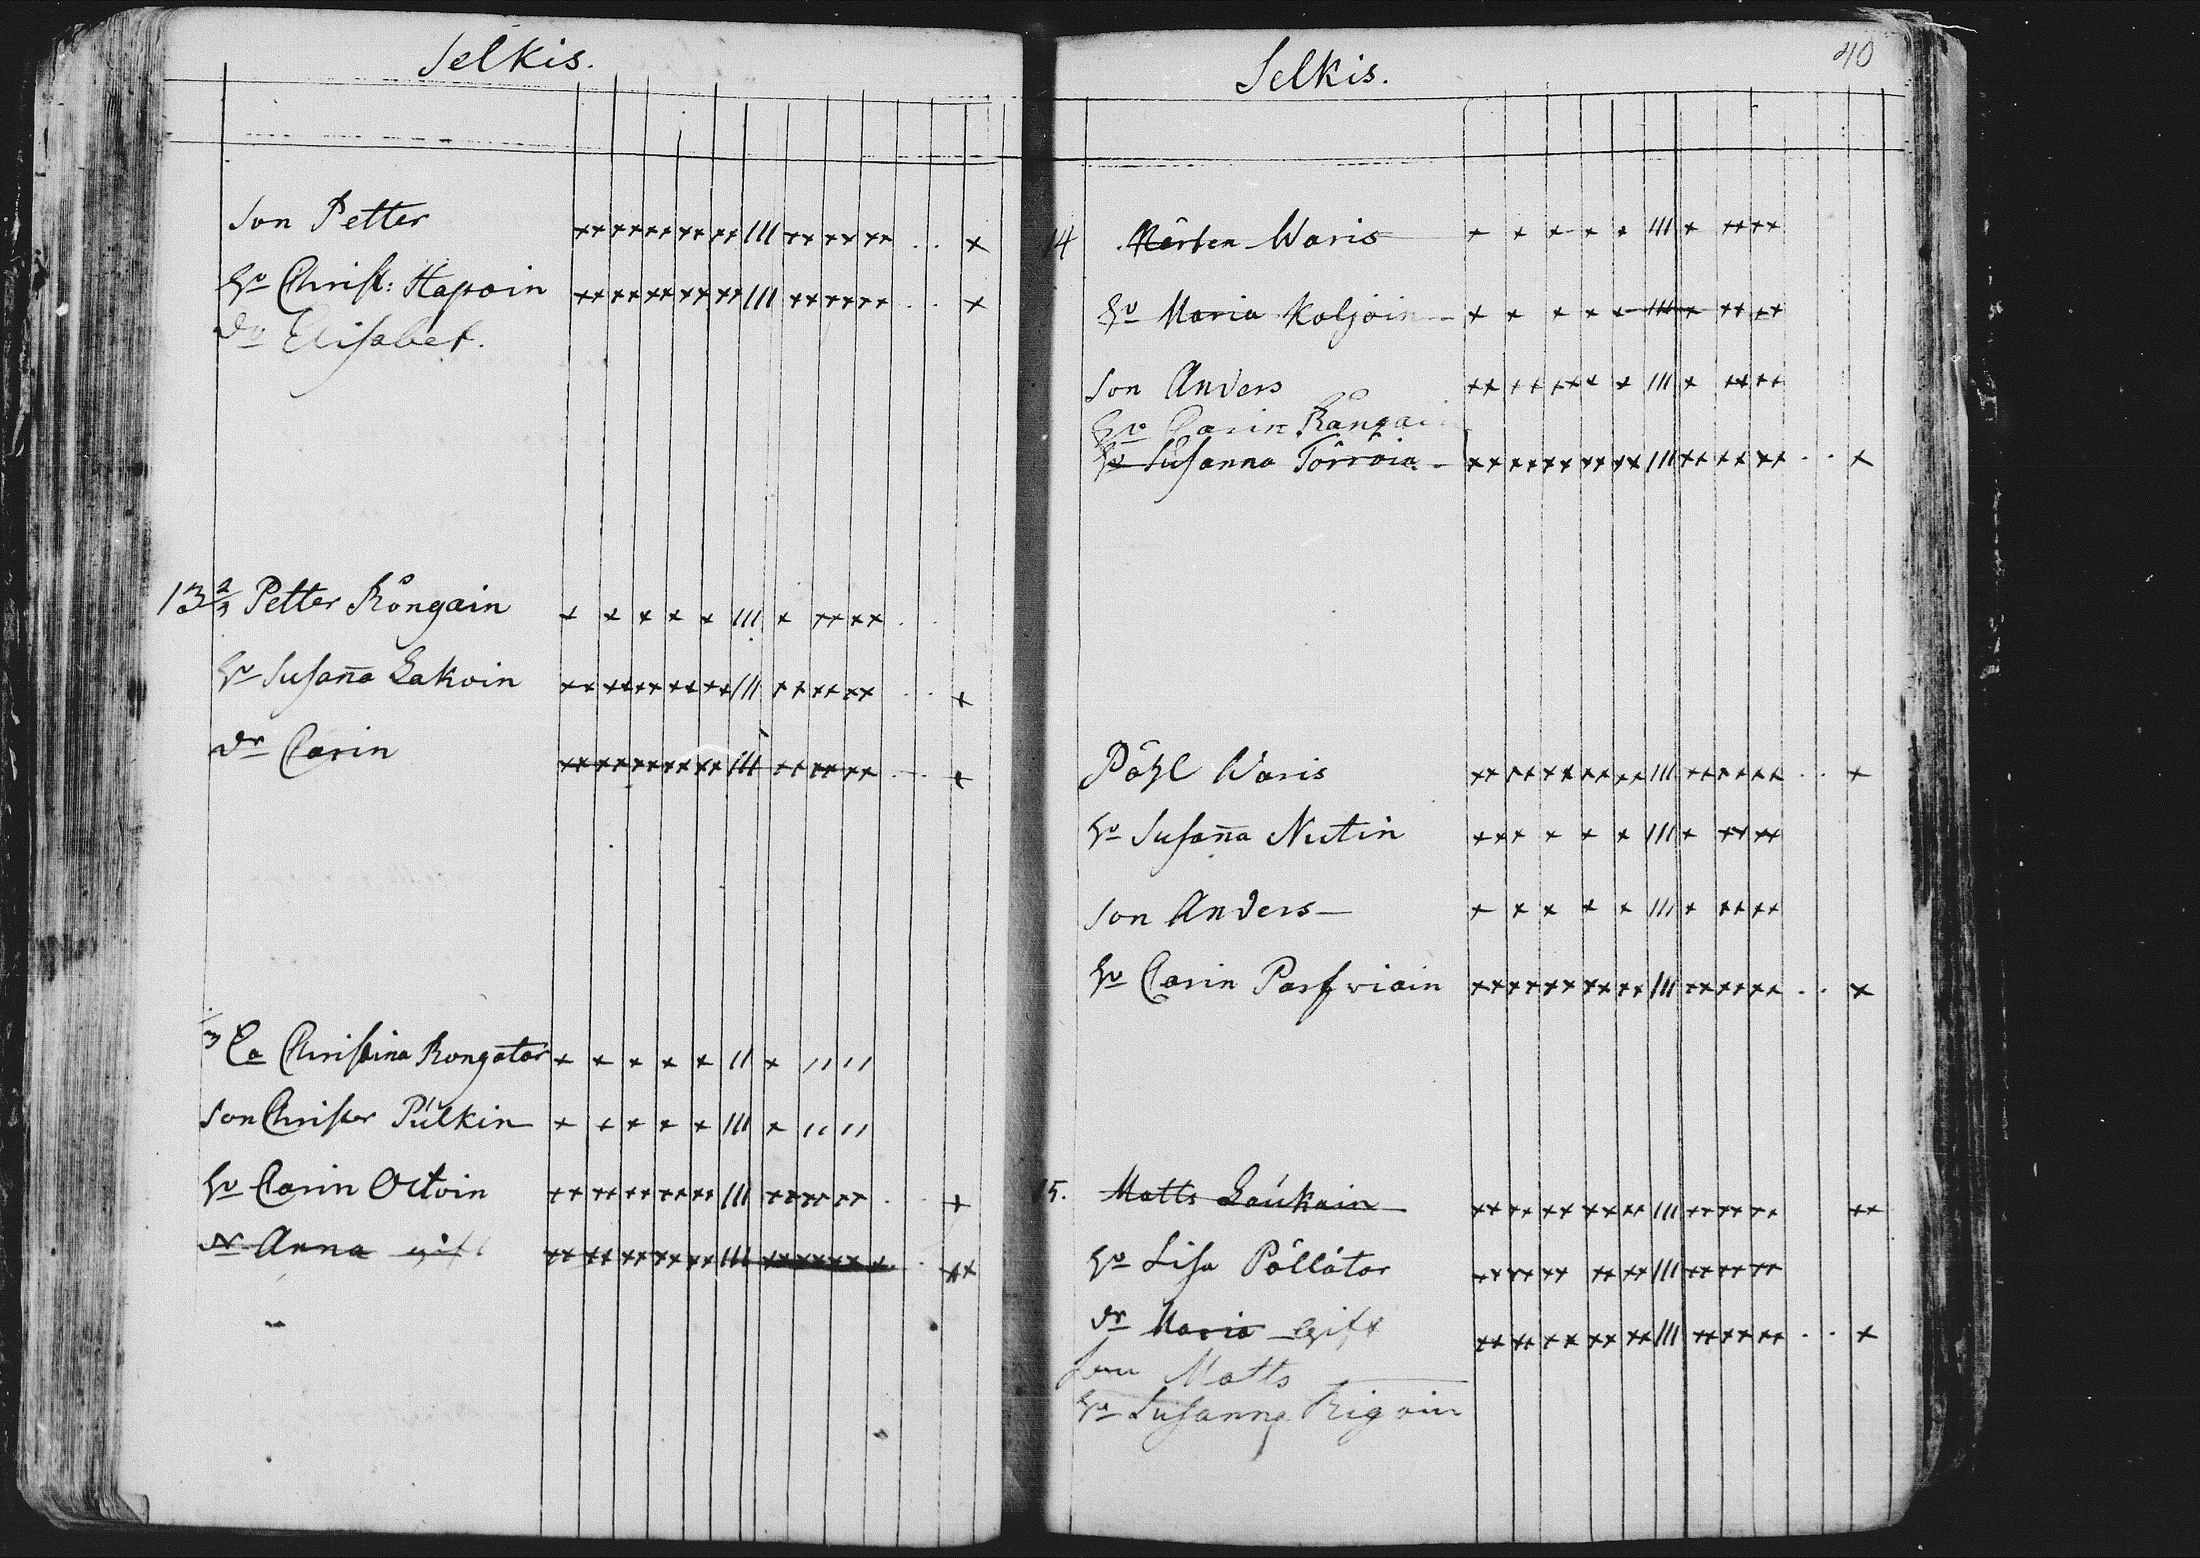 Selkis.
Son Petter
Hu Christ: Hapoin
Dr Elisabet.
13 2/3 Petter Rångain
Hu Susan̄a Lakoin
dr Carin
1/3 Ea Christina Rongatar
Son Christer Pulkin
Hu Carin Octoin
dr Anna gift
Selkis.
40
14 Mårten Waris
Hu Maria Koljoin
Son Anders
Hu Carin Rångai
Hu Susanna Törröin
Påhl Waris
Hu Susan̄a Nutin
Son Anders
Hu Carin Parfwiain
15. Matts Laukain
Hu Lisa Pöllätar
dr Maria gift
Son Matts
Hu Susanna Rigoin